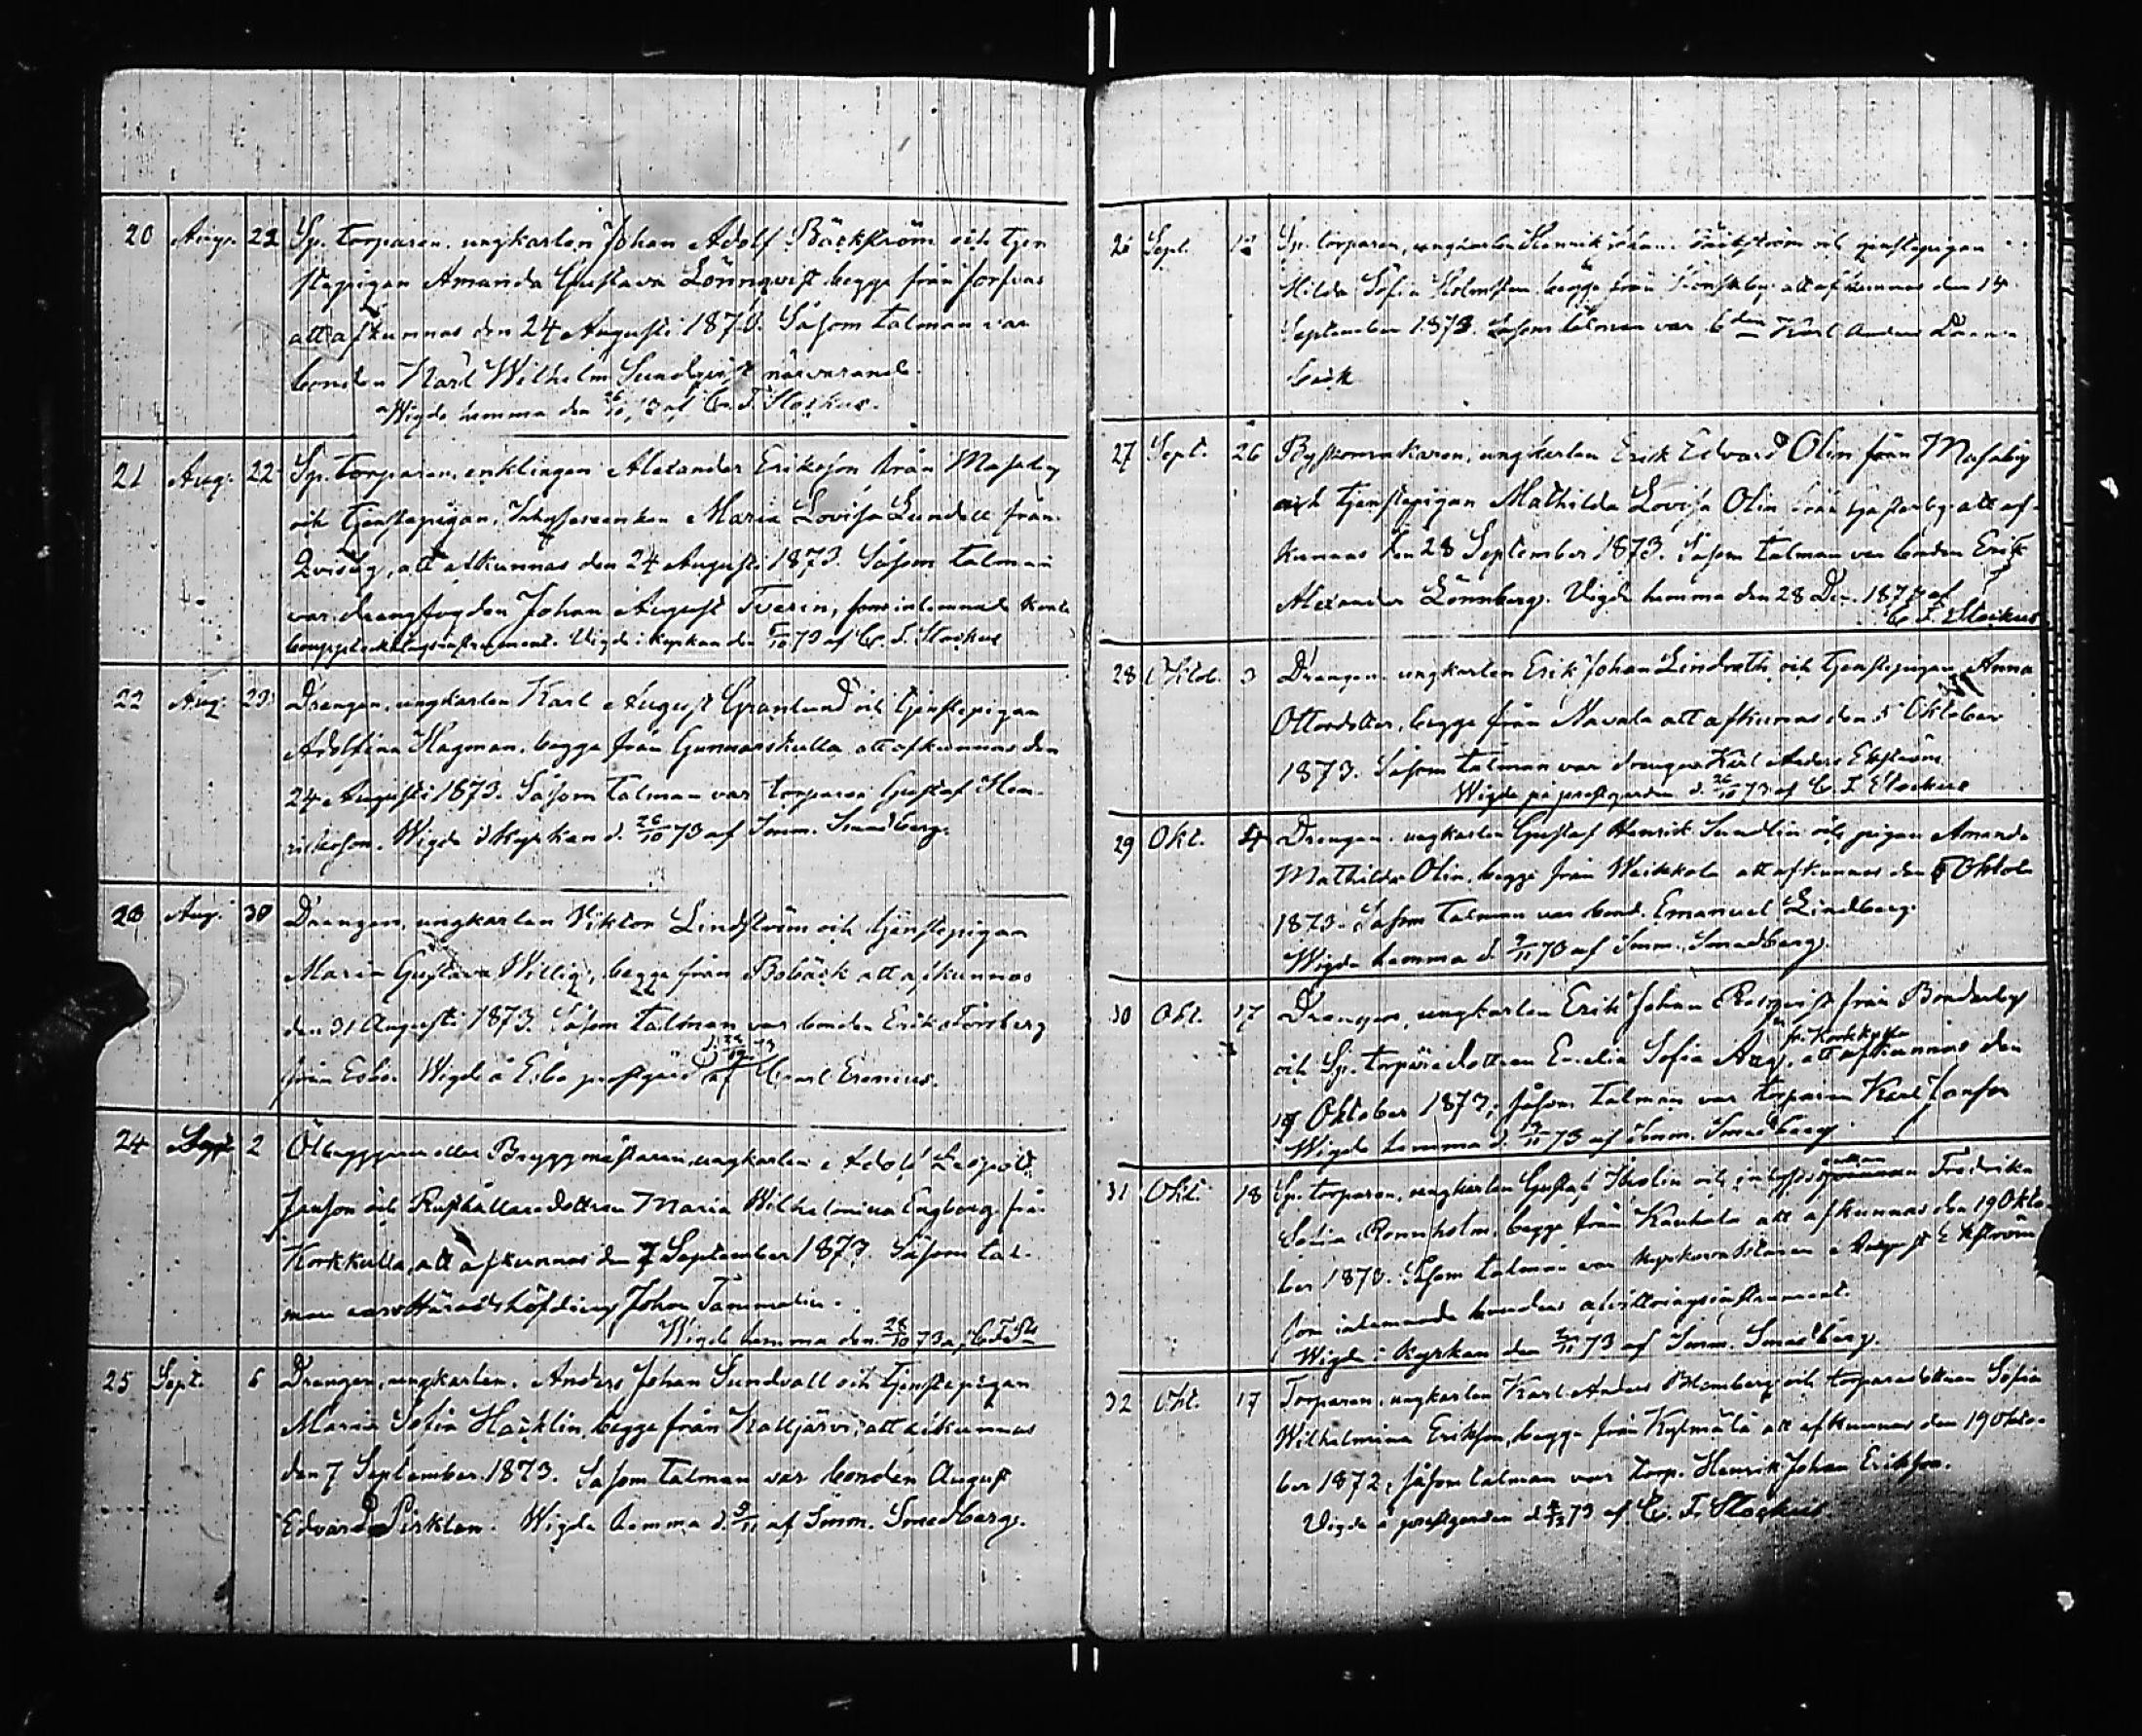 20 Aug. 22 Sp. torparen, ungkarlen Johan Adolf Bäckström och tjen
stepigan Amanda Gustava Lönnqvist begge från Jorfvas
att afkunnas den 24 Augusti 1873. Såsom talman var
bonden Karl Wilhelm Sundqvist närvarande.
Wigde hemma den 26/10 73 af C. F. Stockus.
21 Aug. 22 Sp. torparen, enklingen Alexander Eriksson från Masaby
och tjenstepigan, Maria Lovisa Lundell från
att afkunnas den 24 Augusti 1873. Såsom talman
var drängfogden Johan August Tverin, som inlemnade
Vigde i kyrkan den 73 af C. F. Stockus
22 Aug. 23 Drengen, ungkarlen Karl August Granlund och tjenstepigan
Adolfina Hagman, begge från Gunnarskulla, att afkunnas den
24 Augusti 1873. Såsom talman var torparen Gustaf Hen-
riksson. Wigde i kyrkan d. 26/10 73 af Imm. Smedberg.
23 Aug. 30 Drengen, ungkarlen Viktor Lindström och tjenstepigan
Maria Gustava Willig, begge från Bobäck att afkunnas
den 31 Augusti 1873. Såsom talman var bonden Erik Forsberg
från Esbo. Wigde å Esbo prestgård af Carl Erenius.
24 Sept. 2 Ölbryggaren eller Bryggmästaren, ungkarlen Adolf Leopold
Janson och Rusthållaredottren Maria Wilhelmina Engberg från
Korkkulla, att afkunnas den 7 September 1873. Såsom tal-
man var Häradshöfding Johan Tammelin.
Wigde hemma den 28/10 73 af C F St
25 Sept. 6 Drengen, ungkarlen, Anders Johan Sundvall och tjenstepigan
Maria Sofia Häcklin, begge från Kalljärvi, att afkunnas
den 7 September 1873. Såsom talman var bonden August
Edvard Pirklen. Wigde hemma d. 9/11 af Imm. Smedberg.
26 Sept. Sp. torparen, ungkarlen Henrik Johan Bäckström och tjenstepigan
Hilda Sofia Holmsten begge från att afkunnas den 14
September 1873. Såsom talman var Karl Anders
bäck
27 Sept. 26 Byskomakaren, ungkarlen Erik Edvard Olin från Masaby
och tjenstepigan Mathilda Lovisa Olin från att af-
kunnas den 28 September 1873. Såsom talman var bonden Erik
Alexander Lönnberg. Vigde hemma den 28 Dec. 1873 af
C. F. Stockus
28 Oktob. 3 Drengen, ungkarlen Erik Johan Lindroth och tjenstepigan Anna
Ottosdotter, begge från Navala att afkunnas den 5 Oktober
1873. Såsom talman var drengen Karl Anders Ekström.
Wigde på prestgården d. 26/10 73 af C. F. Stockus
29 Okt. 4 Drengen, ungkarlen Gustaf Henrik Sundlin och pigan Amanda
Mathilda Olin, begge från Weikkola att afkunnas den 5 Oktob.
1873. Såsom talman var bond. Emanuel Lindberg.
Wigde hemma d. 9/11 73 af Imm. Smedberg.
30 Okt. 17 Drengen, ungkarlen Erik Johan Rosqvist från Bonderby
fr. Korkkulla
och Sp. torparedottren Emelia Sofia att afkunnas den
19 Oktober 1873; såsom talman var torparen Karl Janson
Wigde hemma d. 73 af Imm. Smedberg
31 Okt. 18 Sp. torparen, ungkarlen Gustaf Tholin och Fredrika
Sofia Rönnholm, begge från Kauhala att afkunnas den 19 Okto-
ber 1873. Såsom talman var August Ekström
som inlemnade brudens afvittringsinstrument.
Wigde i kyrkan den 73 af Imm. Smedberg.
32 Okt. 17 Torparen, ungkarlen Karl Anders Blomberg och torparedottren Sofia
Wilhelmina Erikson, begge från Kylmälä att afkunnas den 19 Okto-
ber 1873; såsom talman var torp. Henrik Johan Erikson.
Vigde å prestgården d. 73 af C. F. Stockus.